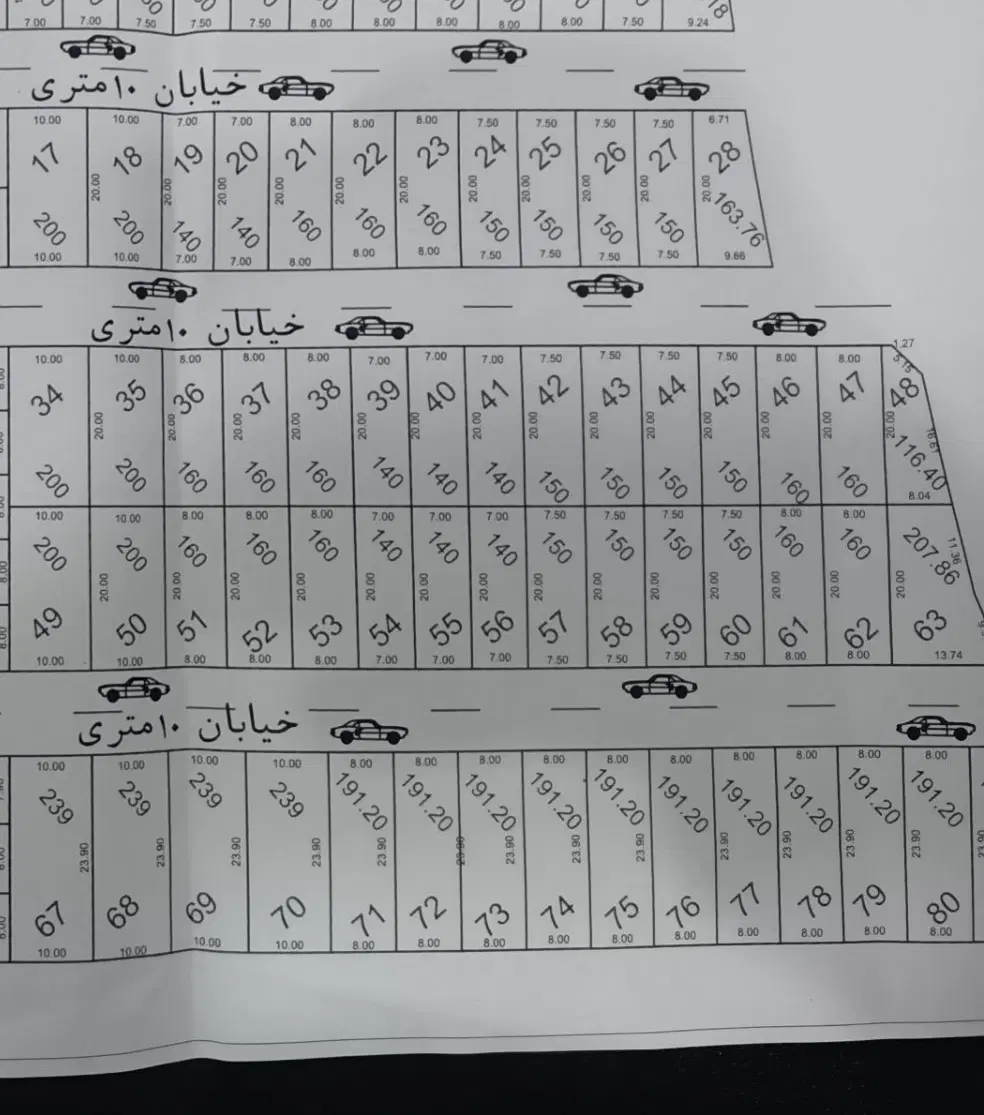 7.00 7.00 7.50 7.50 7.50 8.00 8.00 8.00 8.00 8.00 7.50 9.24
خیابان ۱۰متری
10.00 10.00 7.00 7.00 8.00 8.00 8.00 7.50 7.50 7.50 7.50 6.71
17 18 19 20 21 22 23 24 25 26 27 28
20.00 20.00 20.00 20.00 20.00 20.00 20.00 20.00 20.00 20.00
200 200 140 140 160 160 160 150 150 150 150 163.76
10.00 10.00 7.00 7.00 8.00 8.00 8.00 7.50 7.50 7.50 7.50 9.66
خیابان ۱۰متری
10.00 10.00 8.00 8.00 8.00 7.00 7.00 7.00 7.50 7.50 7.50 7.50 8.00 8.00 1.27
5.15
34 35 36 37 38 39 40 41 42 43 44 45 46 47 48
20.00 20.00 20.00 20.00 20.00 20.00 20.00 20.00 20.00 20.00 20.00 20.00 20.00 20.00 16.61
200 200 160 160 160 140 140 140 150 150 150 150 160 160 116.40
8.04
10.00 10.00 8.00 8.00 8.00 7.00 7.00 7.00 7.50 7.50 7.50 7.50 8.00 8.00
200 200 160 160 160 140 140 140 150 150 150 150 160 160 207.86 11.36
20.00 20.00 20.00 20.00 20.00 20.00 20.00 20.00 20.00 20.00 20.00 20.00 20.00 20.00
49 50 51 52 53 54 55 56 57 58 59 60 61 62 63
10.00 10.00 8.00 8.00 8.00 7.00 7.00 7.00 7.50 7.50 7.50 7.50 8.00 8.00 13.74
خیابان ۱۰متری
10.00 10.00 10.00 10.00 8.00 8.00 8.00 8.00 8.00 8.00 8.00 8.00 8.00 8.00
239 239 239 239 191.20 191.20 191.20 191.20 191.20 191.20 191.20 191.20 191.20 191.20
23.90 23.90 23.90 23.90 23.90 23.90 23.90 23.90 23.90 23.90 23.90 23.90 23.90
67 68 69 70 71 72 73 74 75 76 77 78 79 80
10.00 10.00 10.00 10.00 8.00 8.00 8.00 8.00 8.00 8.00 8.00 8.00 8.00 8.00